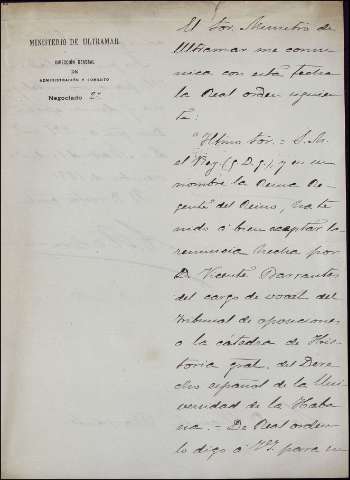 MINISTERIO DE ULTRAMAR
DIRECCIÓN GENERAL
DE
ADMINISTRACIÓN Y FOMENTO
Negociado 2º
El Sor. Ministro de
Ultramar me comu-
nica con esta fecha
la Real orden siguien-
te:
"Iltmo Sor. = S. M.
el Rey (q. D. g.), y en su
nombre la Reina Re-
gente del Reino, ha te-
nido á bien aceptar la
renuncia hecha por
D. Vicente Barrantes
del cargo de vocal del
Tribunal de oposiciones
a la cátedra de His-
toria gral. del Dere-
cho español de la Uni-
versidad de la Haba-
na. - De Real orden
lo digo á V.I. para su